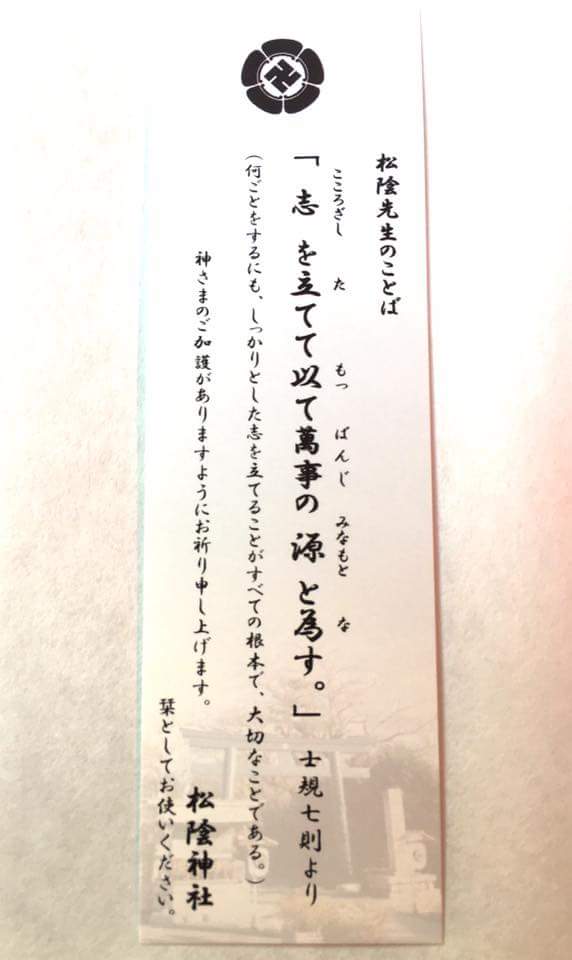 松陰先生のことば
こころざし た もっ ばんじ みなもと な
「志を立てて以て萬事の源と為す。」士規七則より
（何ごとをするにも、しっかりとした志を立てることがすべての根本で、大切なことである。）
神さまのご加護がありますようにお祈り申し上げます。
松陰神社
栞としてお使いください。